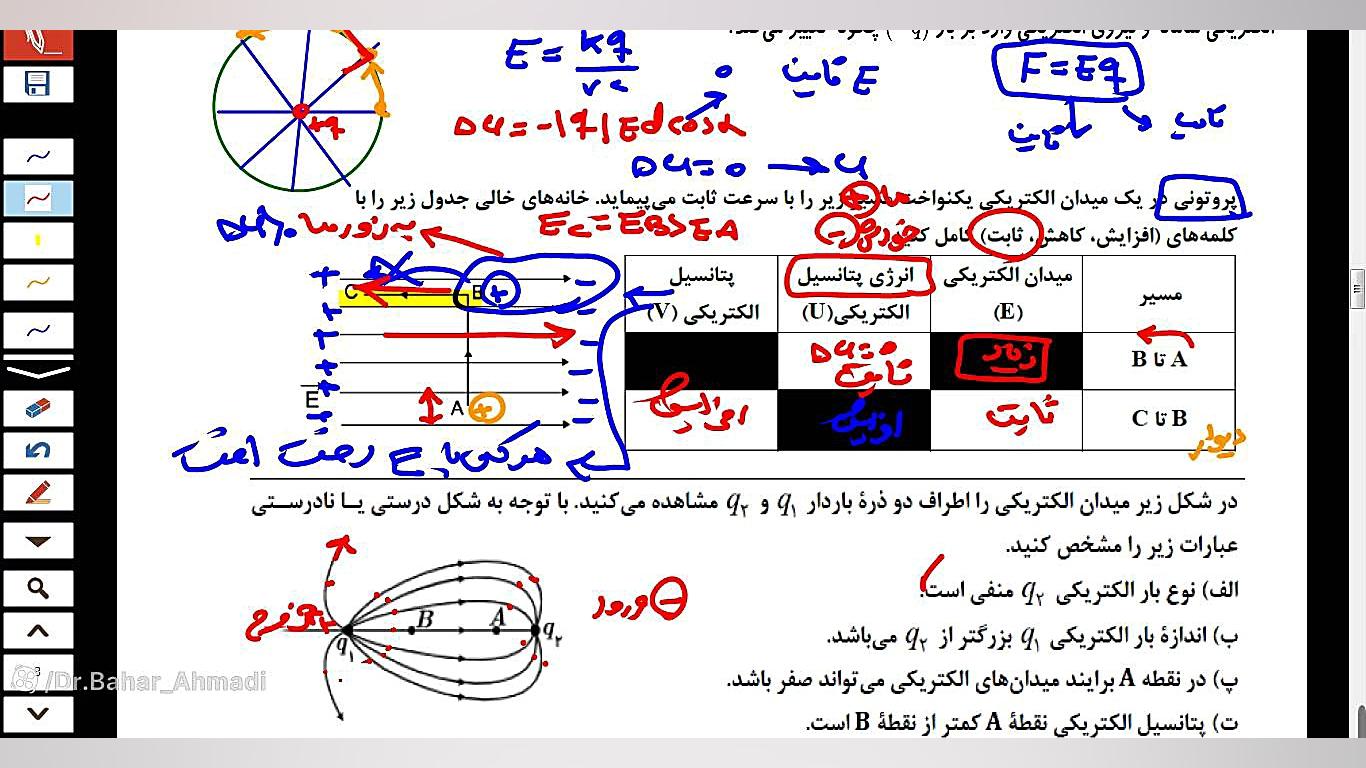 E = kq / r²
E ثابت
F = Eq
ثابت
ثابت
+q
ΔU = -|q|Ed cosα
0
ΔU = 0 → U
پروتونی در یک میدان الکتریکی یکنواخت مسیر زیر را با سرعت ثابت می‌پیماید. خانه‌های خالی جدول زیر را با
کلمه‌های (افزایش، کاهش، ثابت) کامل کنید.
به زور ما
EC = EB > EA
مسیر
میدان الکتریکی (E)
انرژی پتانسیل الکتریکی(U)
پتانسیل الکتریکی (V)
A تا B
ΔU = 0
ثابت
B تا C
ثابت
افزایش
افزایش
C
B
E
A
دیوار
در شکل زیر میدان الکتریکی را اطراف دو ذرهٔ باردار q₁ و q₂ مشاهده می‌کنید. با توجه به شکل درستی یا نادرستی
عبارات زیر را مشخص کنید.
الف) نوع بار الکتریکی q₂ منفی است.
ب) اندازهٔ بار الکتریکی q₁ بزرگتر از q₂ می‌باشد.
پ) در نقطه A برایند میدان‌های الکتریکی می‌تواند صفر باشد.
ت) پتانسیل الکتریکی نقطهٔ A کمتر از نقطهٔ B است.
ورود
B
A
q₁
q₂
/Dr.Bahar_Ahmadi